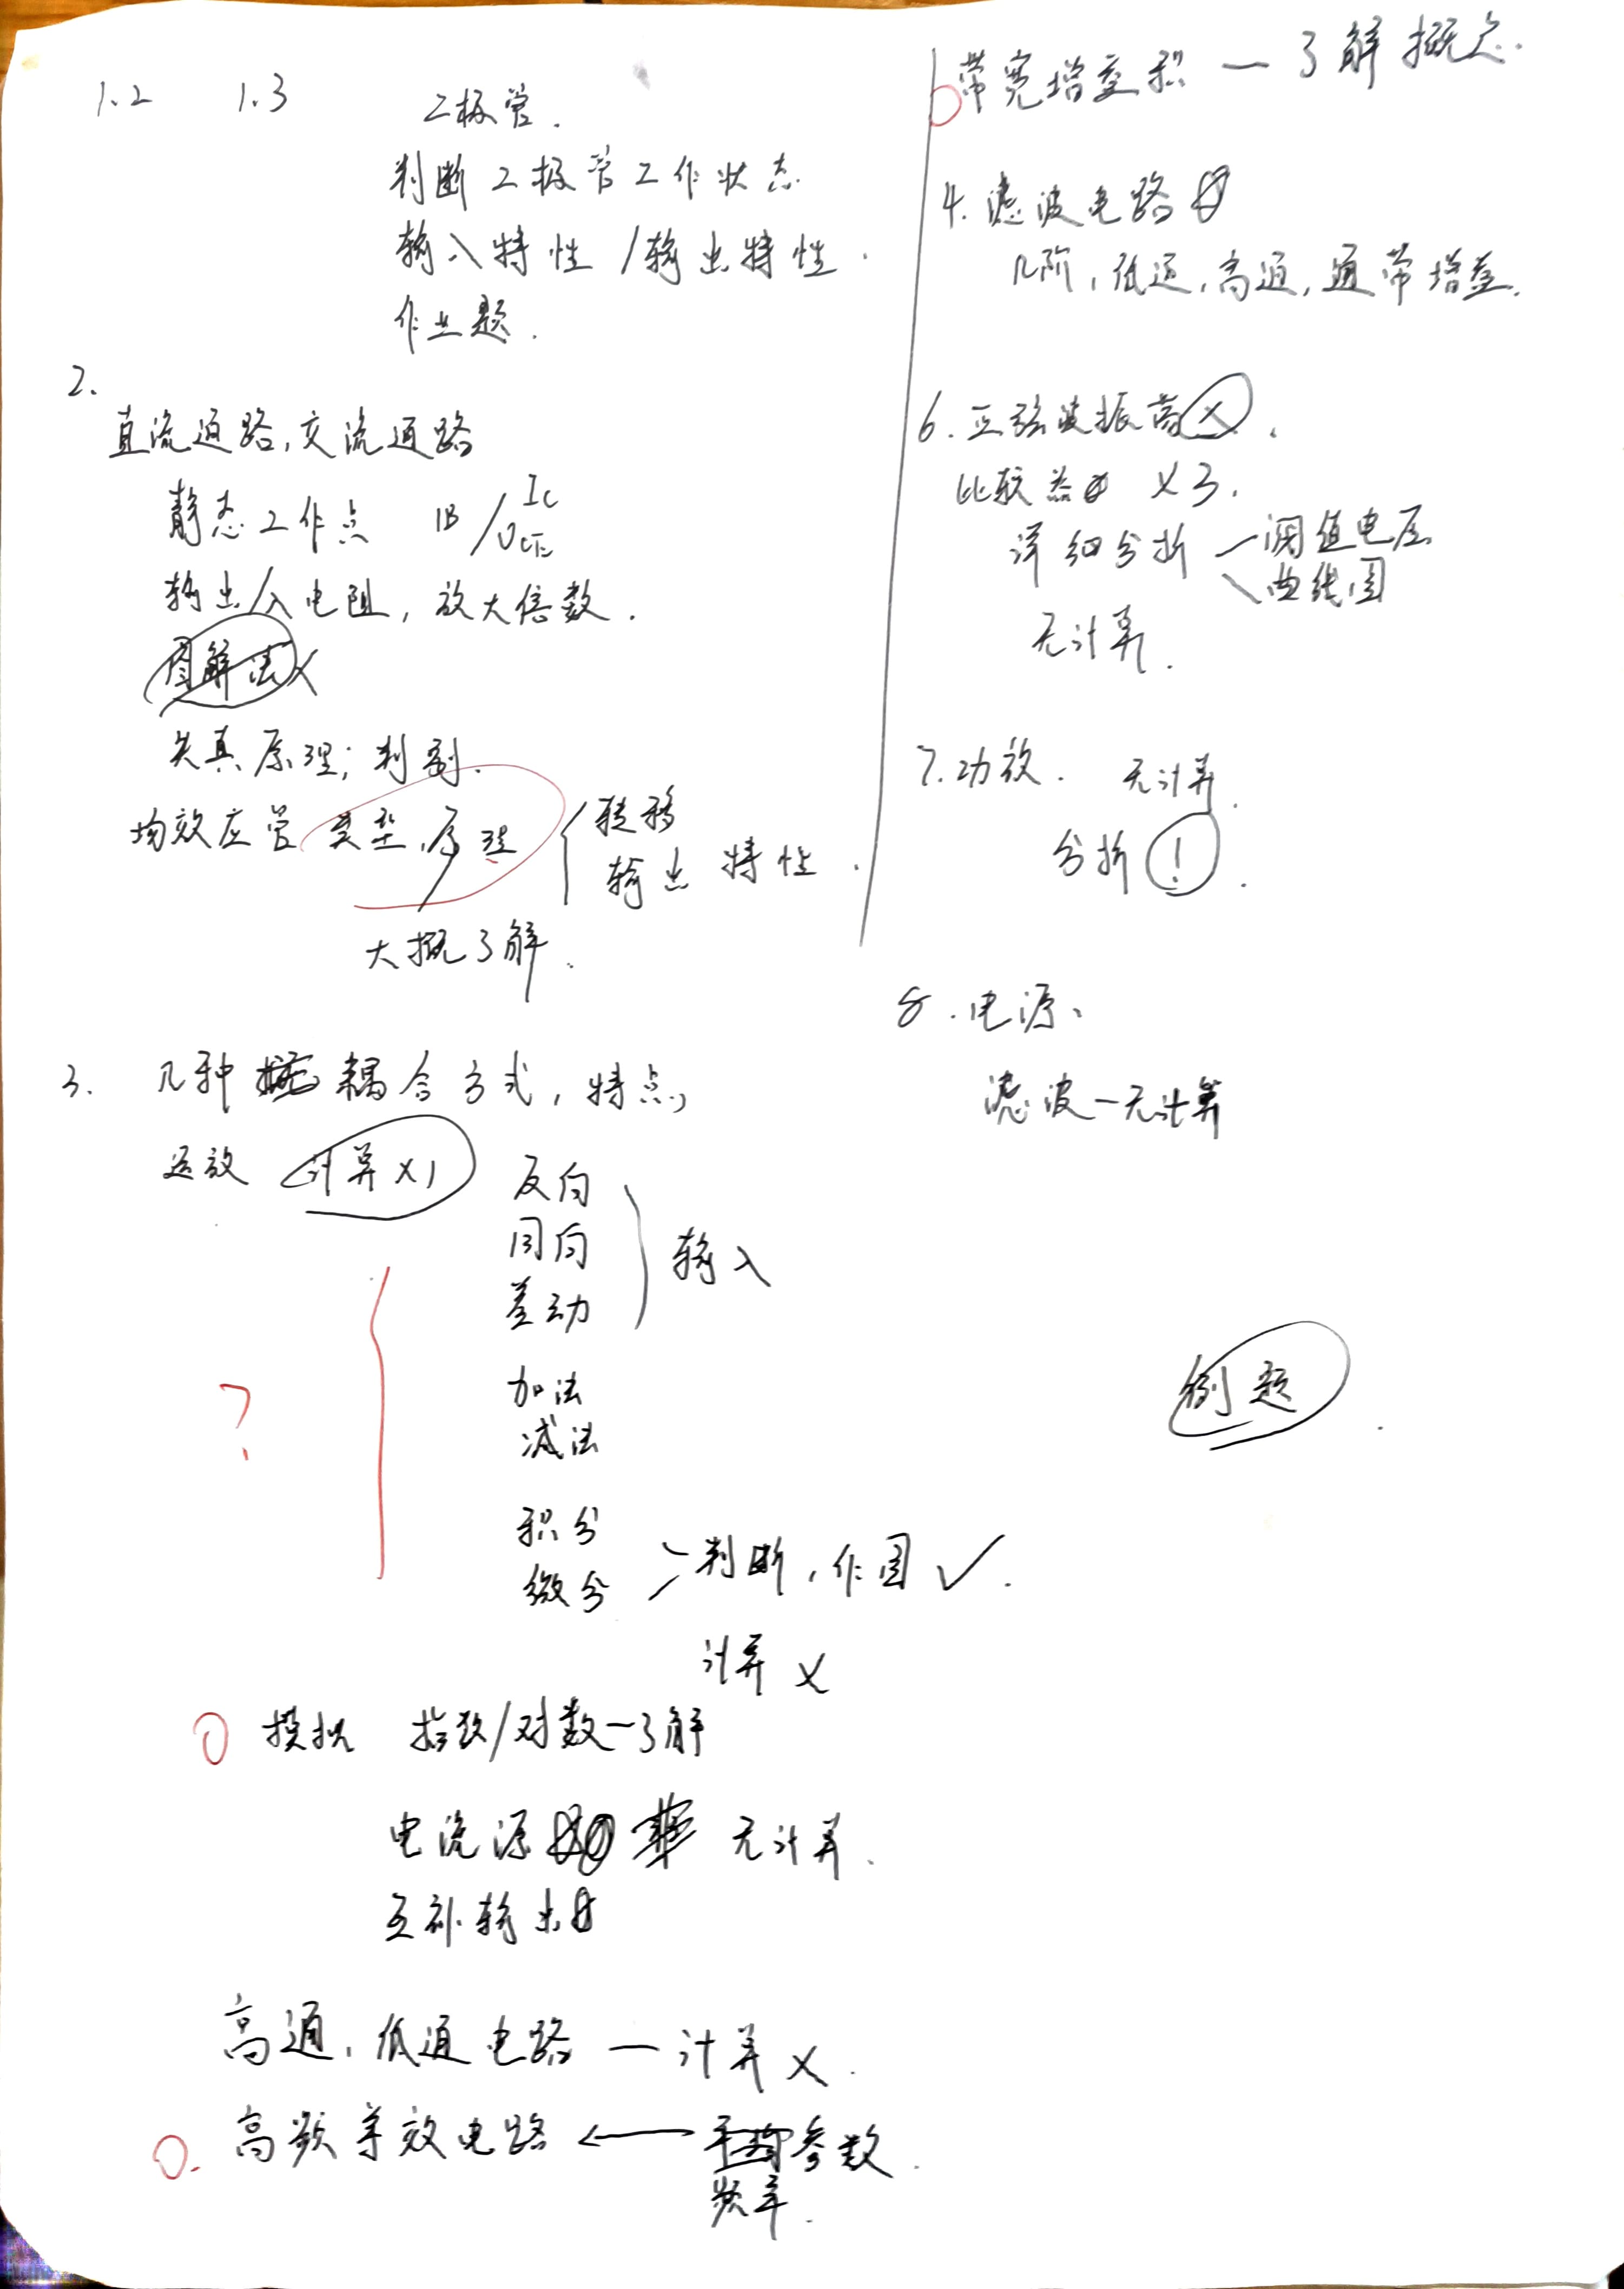 1.2 1.3 二极管.
判断二极管工作状态
输入特性/输出特性.
作业题.
2.
直流通路,交流通路
静态工作点 IB/IC UCE
输出/入电阻,放大倍数.
图解法×
失真原理;判别.
场效应管 类型,原理 {转移 输出 特性.
大概了解.
3. 几种耦合方式,特点,
运放 计算×1
反向
同向
差动
输入
加法
减法
?
积分
微分
判断,作图✓.
计算×
模拟 指数/对数—了解
电流源 无计算.
互补输出
高通,低通电路—计算×.
高频等效电路←参数.
频率.
带宽增益积—了解概念.
4.滤波电路
几阶,低通,高通,通带增益.
6.正弦波振荡×.
比较器 ×3.
详细分析
阈值电压
曲线图
无计算.
7.功放. 无计算.
分析!.
8.电源、
滤波—无计算
例题.